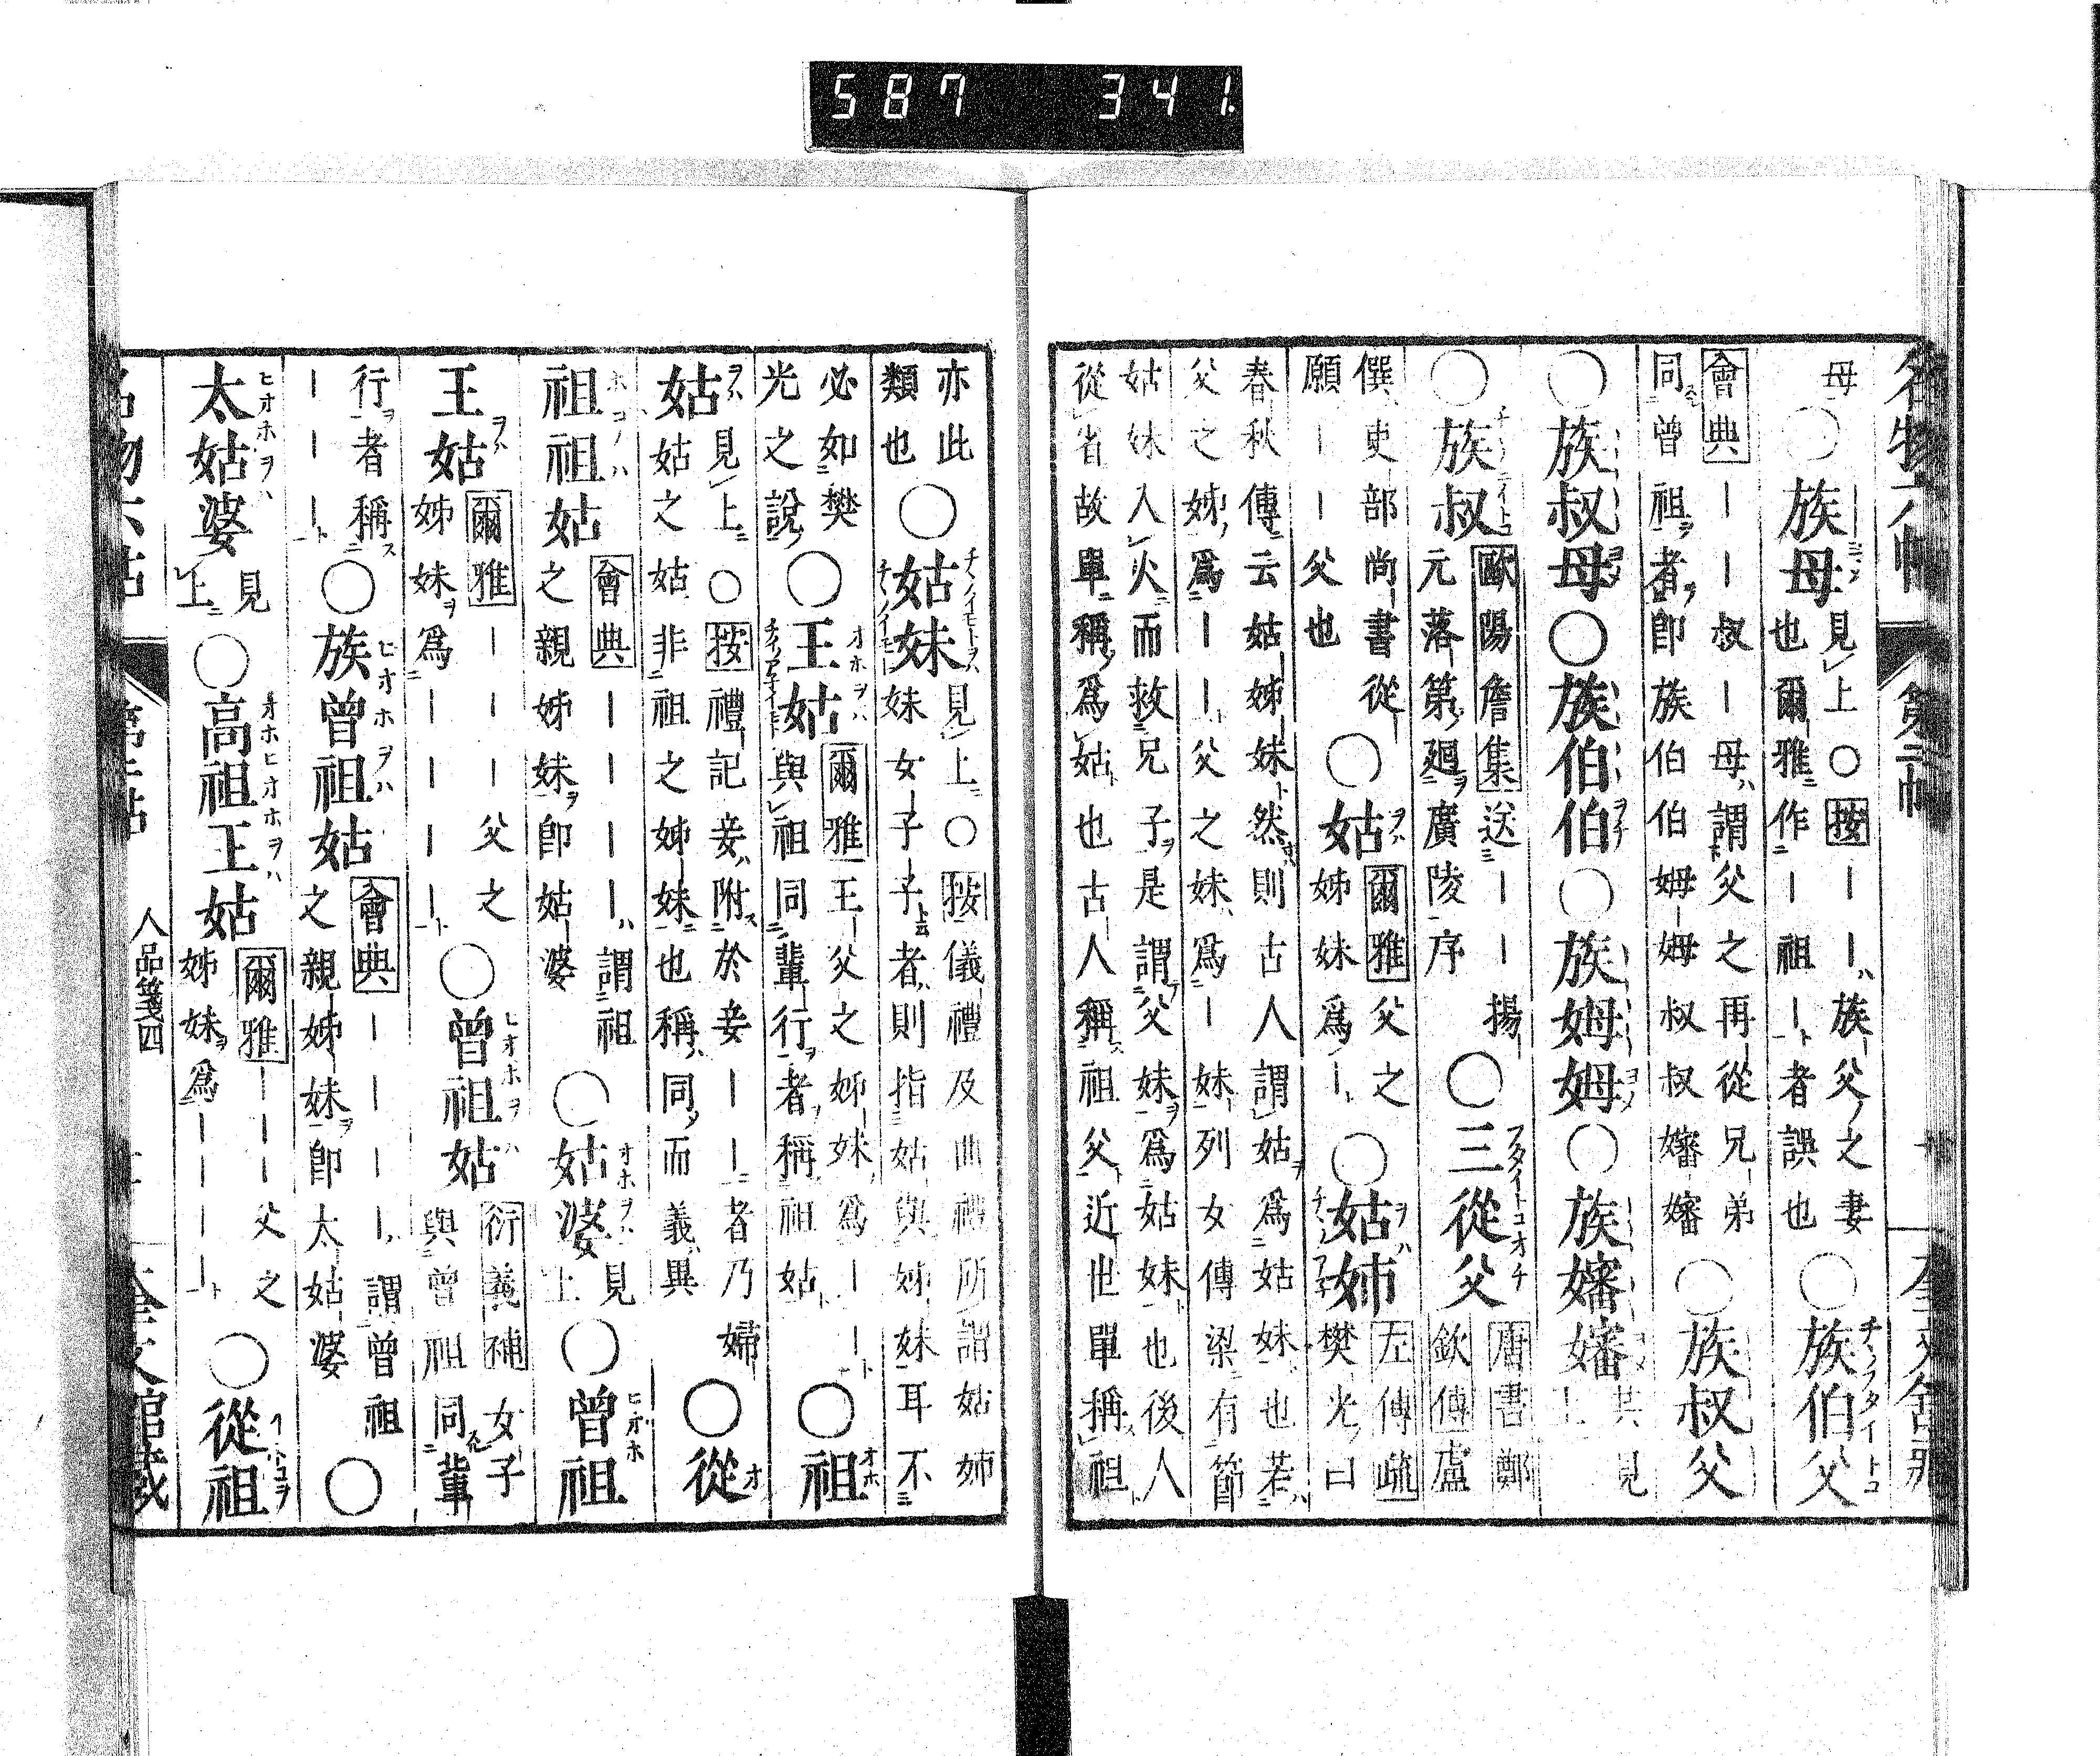 587 341
名物六帖 第二帖
母〇族母見上〇按――族父之妻
也爾雅作―祖―者誤也〇族伯父
會典――叔―母謂父之再從兄弟
同曾祖者卽族伯伯姆姆叔叔嬸嬸〇族叔父
〇族叔母〇族伯伯〇族姆姆〇族嬸嬸共見上
〇族叔歐陽詹集送――揚
元落第廻廣陵序〇三從父唐書鄭
欽傳盧
僎吏部尚書從
願――父也〇姑爾雅父之
姊妹爲―〇姑姊左傳疏
樊光曰
春秋傳云姑姊妹然則古人謂姑爲姑姊妹也若
父之姊爲――父之妹爲―妹列女傳梁有節
姑妹入火而救兄子是謂父妹爲姑妹也後人
從省故單稱爲姑也古人稱祖父近世單稱祖
亦此
類也〇姑妹見上〇按儀禮及曲禮所謂姑姊
妹女子子者則指姑與姊妹耳不
必如樊
光之說〇王姑爾雅王父之姊妹爲――
與祖同輩行者稱祖姑〇祖
姑見上〇按禮記妾附於妾――者乃婦
姑之姑非祖之姊妹也稱同而義異〇從
祖祖姑會典――――謂祖
之親姊妹卽姑婆〇姑婆見上〇曾祖
王姑爾雅―――父之
姊妹爲――――〇曾祖姑衍義補女子
與曾祖同輩
行者稱
―――〇族曾祖姑會典――――謂曾祖
之親姊妹卽太姑婆〇
太姑婆見上〇高祖王姑爾雅―――父之
姊妹爲――――〇從祖
人品箋四